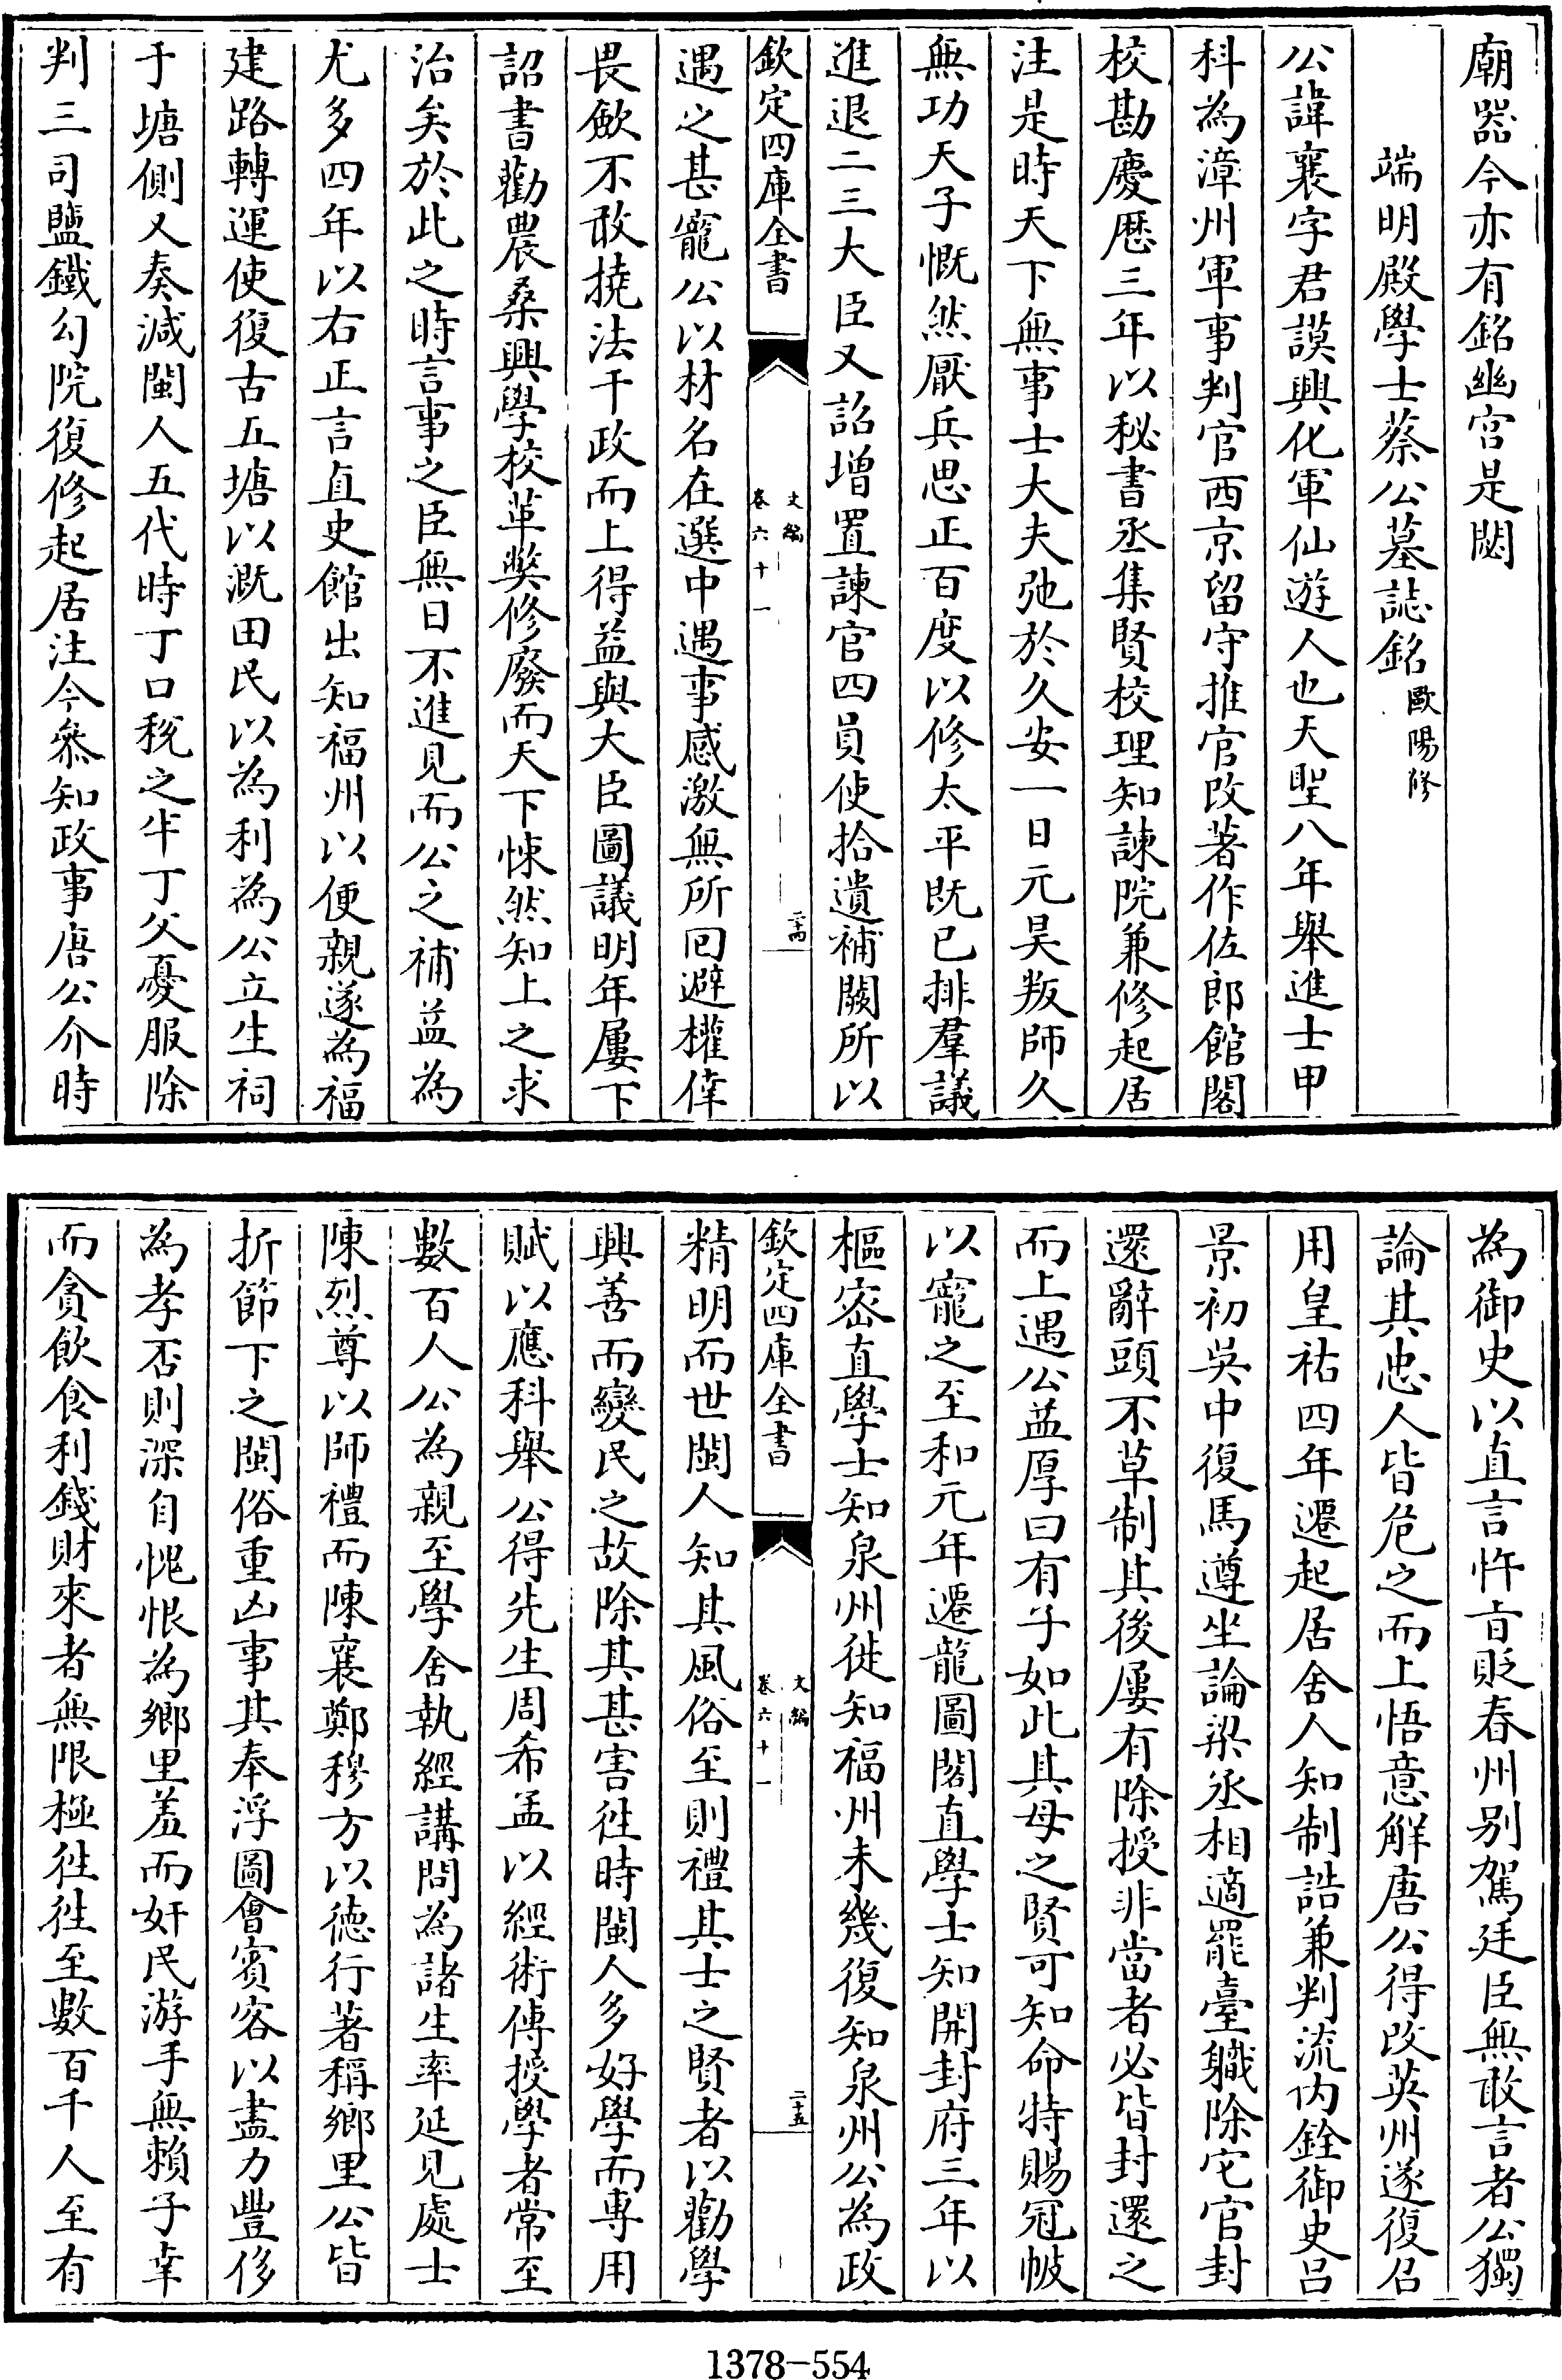 廟器今亦有銘幽宫是閟
端明殿學士蔡公墓誌銘歐陽修
公諱襄字君謨興化軍仙遊人也天聖八年舉進士甲
科為漳州軍事判官西京留守推官改著作佐郎館閣
校勘慶厯三年以秘書丞集賢校理知諫院兼修起居
注是時天下無事士大夫弛於久安一日元昊叛師久
無功天子慨然厭兵思正百度以修太平既已排羣議
進退二三大臣又詔增置諫官四員使拾遺補闕所以
欽定四庫全書
文編
卷六十一
二十四
遇之甚寵公以材名在選中遇事感激無所回避權倖
畏歛不敢撓法干政而上得益與大臣圖議明年屢下
詔書勸農桑興學校革弊修廢而天下悚然知上之求
治矣於此之時言事之臣無日不進見而公之補益為
尤多四年以右正言直史館出知福州以便親遂為福
建路轉運使復古五塘以溉田民以為利為公立生祠
于塘側又奏減閩人五代時丁口稅之半丁父憂服除
判三司鹽鐵勾院復修起居注今叅知政事唐公介時
為御史以直言忤㫖貶春州别駕廷臣無敢言者公獨
論其忠人皆危之而上悟意解唐公得改英州遂復召
用皇祐四年遷起居舍人知制誥兼判流内銓御史吕
景初吳中復馬遵坐論梁丞相適罷臺職除宅官封
還辭頭不草制其後屢有除授非當者必皆封還之
而上遇公益厚曰有子如此其母之賢可知命特賜冠帔
以寵之至和元年遷龍圖閣直學士知開封府三年以
樞密直學士知泉州徙知福州未幾復知泉州公為政
欽定四庫全書
文編
卷六十一
二十五
精明而世閩人知其風俗至則禮其士之賢者以勸學
興善而變民之故除其甚害徃時閩人多好學而專用
賦以應科舉公得先生周希孟以經術傳授學者常至
數百人公為親至學舍執經講問為諸生率延見處士
陳烈尊以師禮而陳襄鄭穆方以德行著稱鄉里公皆
折節下之閩俗重凶事其奉浮圖會賓客以盡力豐侈
為孝否則深自愧恨為鄉里羞而奸民游手無賴子幸
而貪飲食利錢財來者無限極徃徃至數百千人至有
1378-554